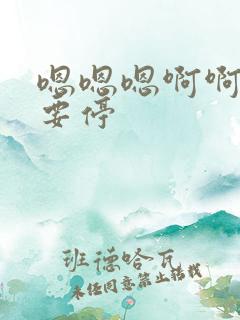 嗯嗯嗯啊啊
要停
班德哈瓦
未经同意禁止转载